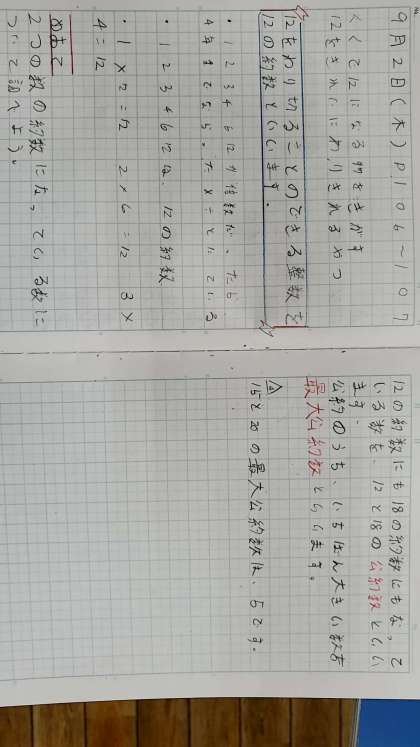 9月2日(木) P.106~107
12をきれいにわりきれるやつ
12をわり切ることのできる整数を
12の約数といいます。
・1 2 3 4 6 12は、12の約数
・1×12=12 2×6=12 3×
4=12
めあて
2つの数の約数になっている数に
ついて調べよう。
12の約数にも18の約数にもなって
いる数を、12と18の公約数といい
ます。
公約のうち、いちばん大きい数を
最大公約数といいます。
15と20の最大公約数は、5です。